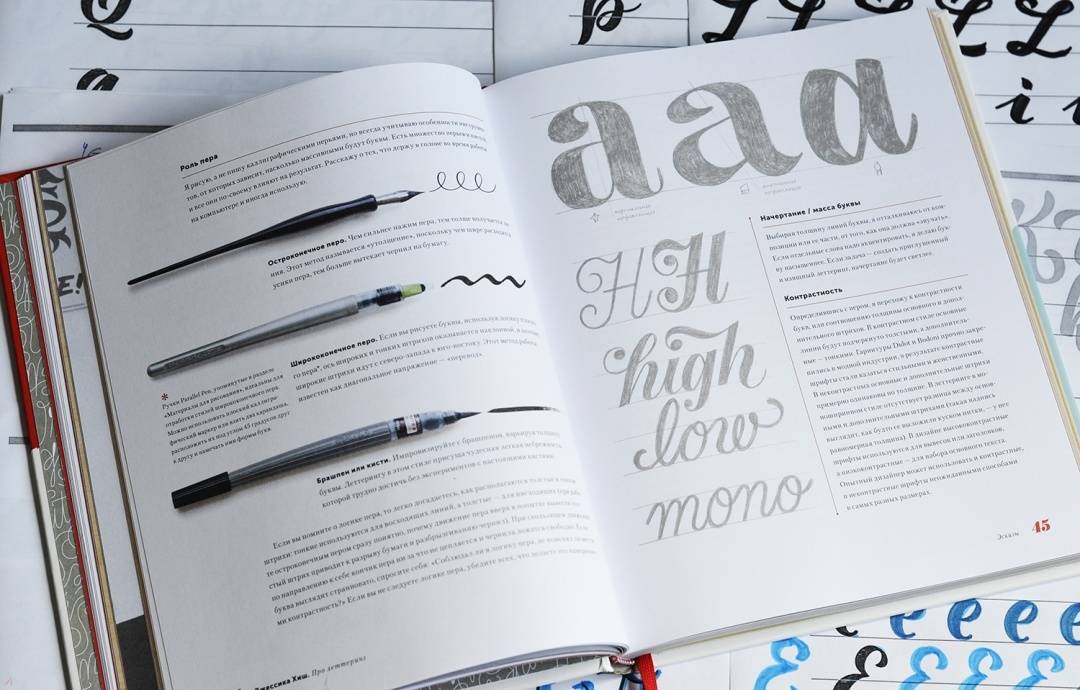 Роль пера
Я рисую, а не пишу каллиграфическими перьями, но всегда учитываю особенности
тов, от которых зависит, насколько массивными будут буквы. Есть множество перьев
и все они по-своему влияют на результат. Расскажу о тех, что держу в голове во время работы
на компьютере и иногда использую.
Остроконечное перо. Чем сильнее нажим пера, тем толще получается
ния. Этот метод называется «утолщение», поскольку чем шире
усики пера, тем больше вытекает чернил на бумагу.
Ширококонечное перо. Если вы рисуете буквы, используя логику
го пера*, ось широких и тонких штрихов оказывается наклонной, а
широкие штрихи идут с северо-запада к юго-востоку. Этот метод
известен как диагональное напряжение — «перевод».
*
Ручки Parallel Pen, упомянутые в разделе
«Материалы для рисования», идеальны для
отработки стилей ширококонечного пера.
Можно использовать плоский каллигра-
фический маркер или взять два карандаша,
расположить их под углом 45 градусов друг
к другу и намечать ими форму букв.
Брашпен или кисти. Импровизируйте с брашпеном, варьируя толщину
буквы. Леттерингу в этом стиле присуща чудесная легкая небрежность,
которой трудно достичь без экспериментов с настоящими кистями.
Если вы помните о логике пера, то легко догадаетесь, как располагаются толстые и тонкие
штрихи: тонкие используются для восходящих линий, а толстые — для нисходящих
те остроконечным пером сразу понятно, почему движение пера вверх в попытке вывести
стый штрих приводит к разрыву бумаги и разбрызгиванию чернил). При скольжении
по направлению к себе кончик пера ни за что не цепляется и чернила ложатся свободно. Если
буква выглядит странновато, спросите себя: «Соблюдал ли я логику пера, не
ми контрастность?» Если вы не следуете логике пера, убедите всех, что
Джессика Хиш. Про леттеринг
a a a
H H
high
low
mono
Начертание / масса буквы
Выбирая толщину линий буквы, я отталкиваюсь от ком-
позиции или ее части, от того, как она должна «звучать».
Если отдельные слова надо акцентировать, я делаю бук-
ву насыщеннее. Если задача — создать приглушенный
и изящный леттеринг, начертание будет светлее.
Контрастность
Определившись с пером, я перехожу к контрастности
букв, или соотношению толщины основного и допол-
нительного штрихов. В контрастном стиле основные
линии будут подчеркнуто толстыми, а дополнитель-
ные — тонкими. Гарнитуры Didot и Bodoni прочно закре-
пились в модной индустрии, в результате контрастные
шрифты стали казаться стильными и женственными.
В неконтрастных основные и дополнительные штрихи
примерно одинаковы по толщине. В леттеринге в мо-
ноширинном стиле отсутствует разница между основ-
ными и дополнительными штрихами (такая надпись
выглядит, как будто ее выложили куском нитки, — у нее
равномерная толщина). В дизайне высококонтрастные
шрифты используются для вывесок или заголовков,
а низкоконтрастные — для набора основного текста.
Опытный дизайнер может использовать и контрастные,
и неконтрастные шрифты неожиданными способами
и в самых разных размерах.
Эскизы 45